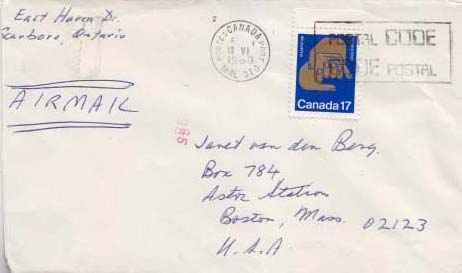 East Haven Dr.
Scarboro, Ontario
AIRMAIL
POSTES CANADA POST
VI
1980
POSTAL CODE
CODE POSTAL
Canada 17
Janet van den Berg.
Box 784
Astor Station
Boston, Mass 02123
U.S.A